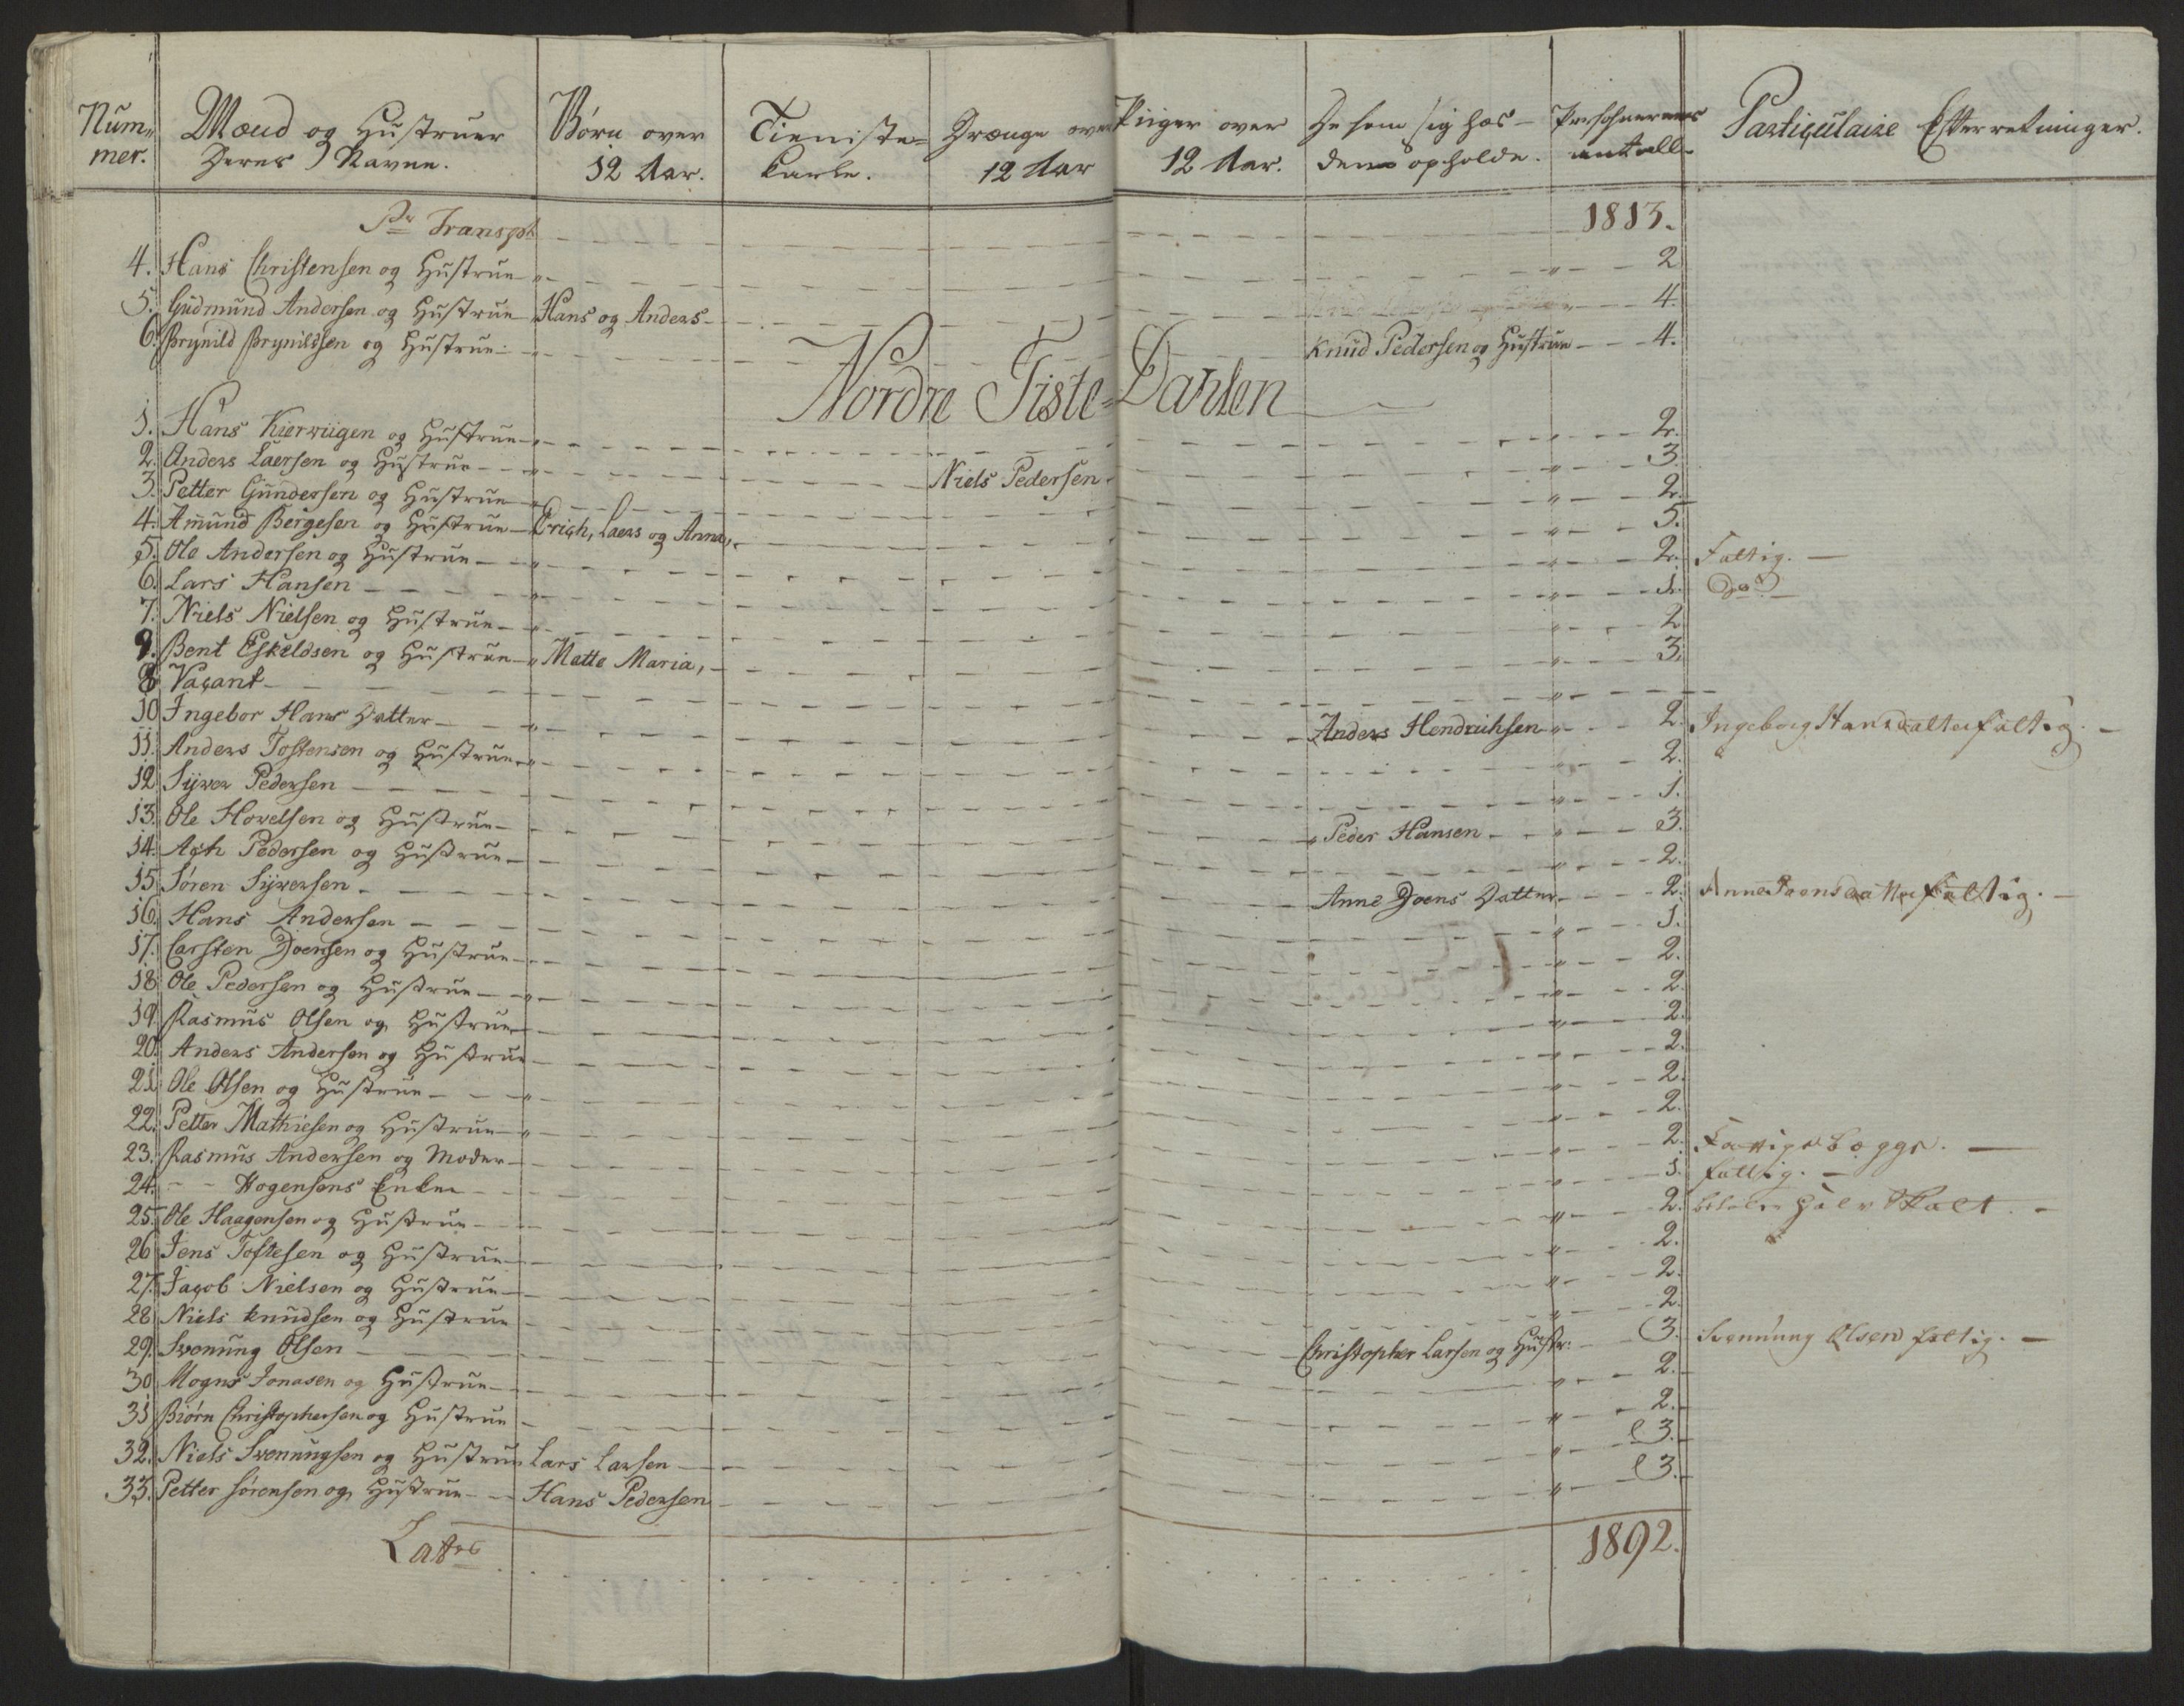 Num= mer. | Mænd og Hustruer Deres Navne. | Børn over 12 Aar. | Tieniste= Karle. | Drænge over 12 Aar | Piiger over 12 Aar. | De som sig hos dem opholde. | Personernes antall | Partiqulaire Efterretninger.
Pr Transpt 1813.
4. Hans Christensen og Hustrue 2
5. Gudmund Andersen og Hustrue Hans og Anders 4.
6. Brynild Brynildsen og Hustrue Knud Pedersen og Hustrue 4.
Nordre Tiste=Dahlen
1. Hans Kierwiigen og Hustrue 2.
2. Anders Laersen og Hustrue Niels Pedersen 3.
3. Petter Gundersen og Hustrue 2.
4. Amund Bergesen og Hustrue Erich, Laers og Anna, 5.
5. Ole Andersen og Hustrue 2. Fattig.
6. Lars Hansen 1. Do
7. Niels Nielsen og Hustrue 2
9. Bent Eskildsen og Hustrue Mette Maria, 3.
8 Vaçant
10 Ingebor Hans Datter Anders Hendrichsen 2. Ingeborg Hansdatter fattig.
11. Anders Tostensen og Hustrue 2.
12 Syver Pedersen 1.
13. Ole Hovelsen og Hustrue Peder Hansen 3.
14. Agh Pedersen og Hustrue 2.
15 Søren Syversen Anne Joens Datter 2. Anne Joensdatter fattig.
16. Hans Andersen 1.
17. Carsten Joensen og Hustrue 2.
18 Ole Pedersen og Hustrue 2.
19. Rasmus Olsen og Hustrue 2.
20. Anders Andersen og Hustrue 2.
21 Ole Olsen og Hustrue 2.
22. Petter Mathiesen og Hustrue 2.
23. Rasmus Andersen og Moder 2. Fattige begge.
24. Hogensens Enke 1. fattig.
25. Ole Haagensen og Hustrue 2. betaler halv Skatt.
26 Jens Toftesen og Hustrue 2.
27. Jaçob Nielsen og Hustrue 2.
28. Niels Knudsen og Hustrue 2.
29. Svenung Olsen Christopher Larsen og Hustr: 3. Svennung Olsen fattig.
30 Mogns Jonasen og Hustrue 2.
31 Biørn Christophersen og Hustrue 2.
32. Niels Svenungsen og Hustrue Lars Larsen 3.
33. Petter Sørensen og Hustrue Hans Pedersen 3.
Lattes 1892.